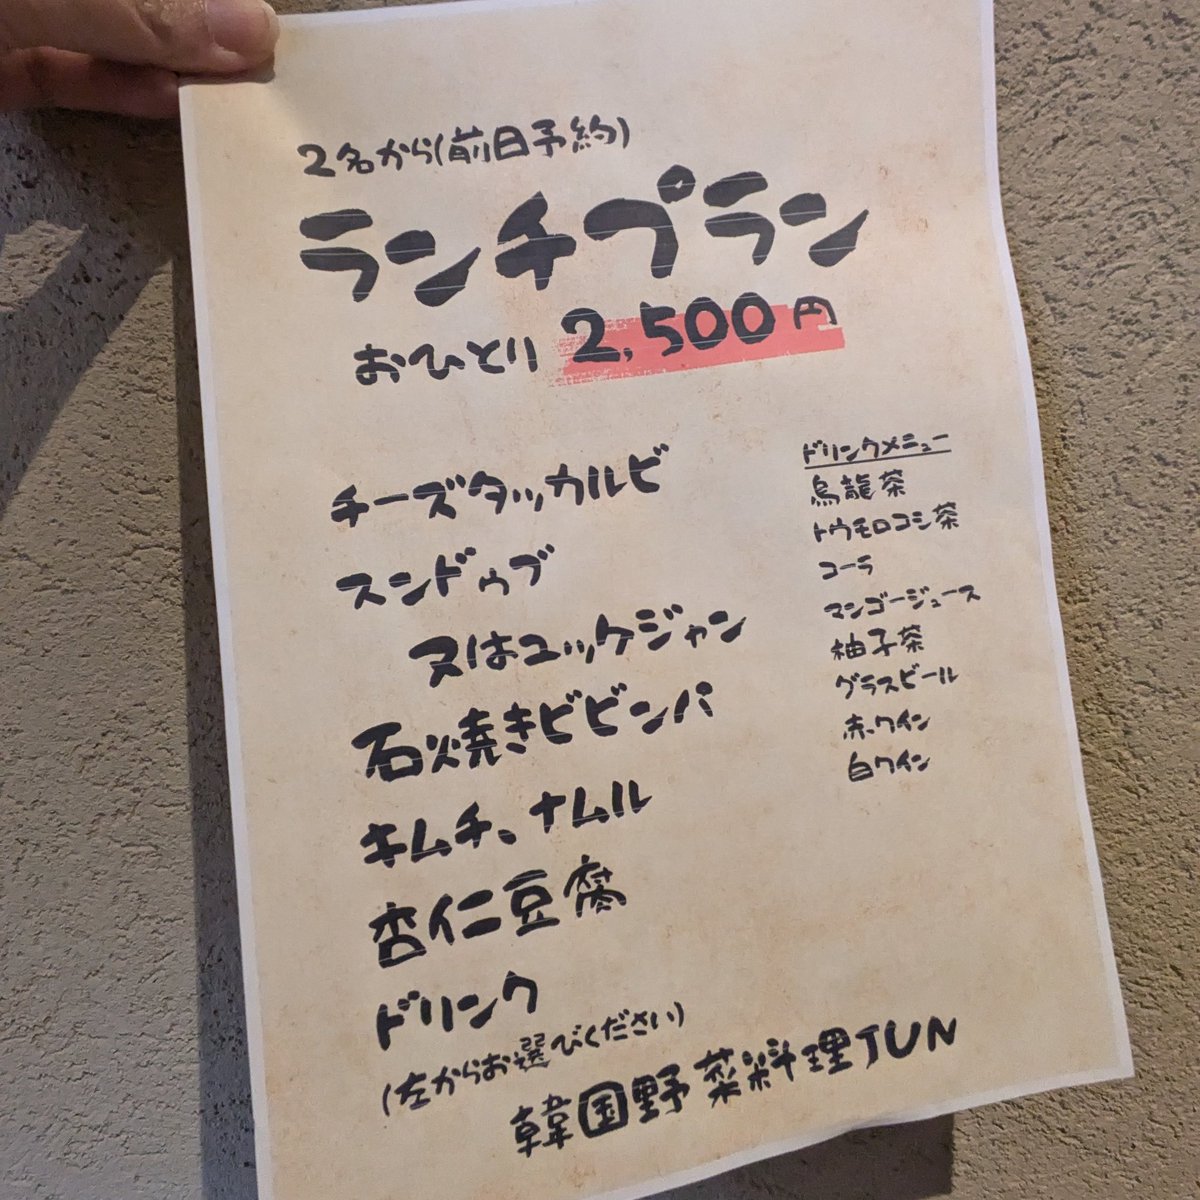 2名から(前日予約)
ランチプラン
おひとり 2,500円
チーズタッカルビ
スンドゥブ
又はユッケジャン
石焼きビビンパ
キムチ、ナムル
杏仁豆腐
ドリンク
(左からお選びください)
ドリンクメニュー
烏龍茶
トウモロコシ茶
コーラ
マンゴージュース
柚子茶
グラスビール
赤ワイン
白ワイン
韓国野菜料理JUN